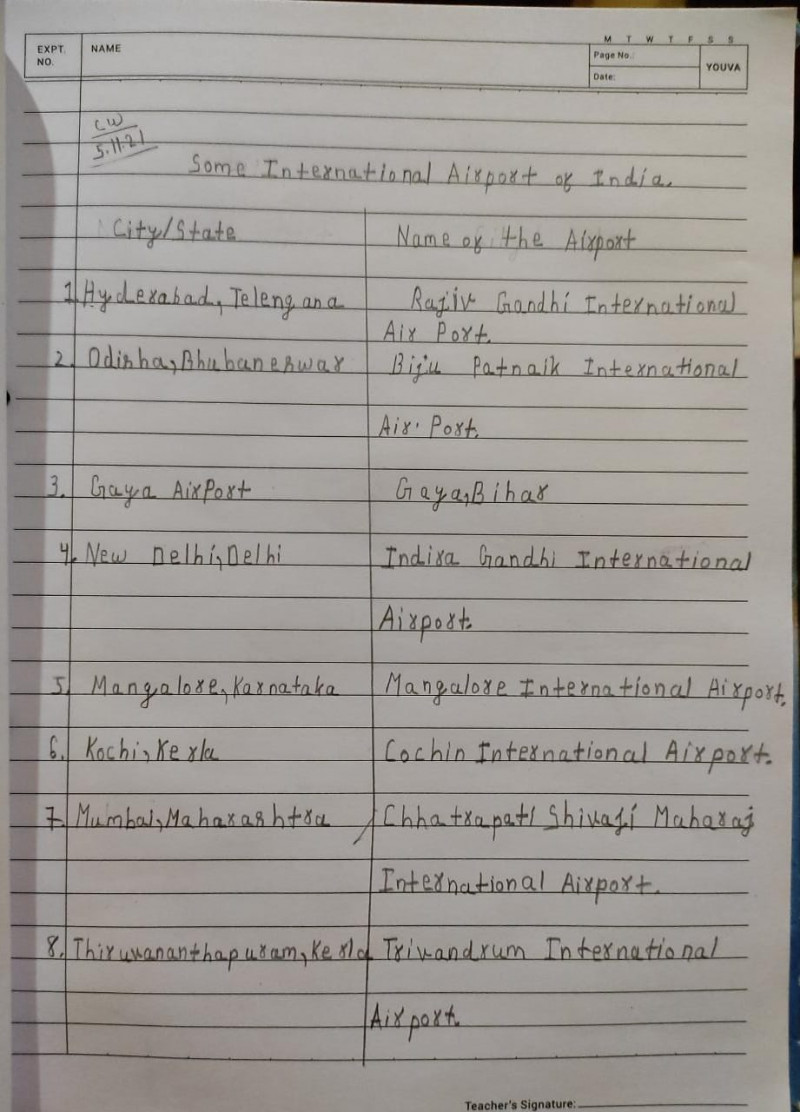 M T W T F S S
EXPT. NO.
NAME
Page No.:
Date:
YOUVA
CW
5.11.21
Some International Airport of India.
City/State Name of the Airport
1. Hyderabad, Telengana Rajiv Gandhi International
Air Port.
2. Odisha, Bhubaneswar Biju Patnaik International
Air Port.
3. Gaya AirPort Gaya, Bihar
4. New Delhi, Delhi Indira Gandhi International
Airport.
5. Mangalore, Karnataka Mangalore International Airport.
6. Kochi, Kerla Cochin International Airport.
7. Mumbai, Maharashtra Chhatrapati Shivaji Maharaj
International Airport.
8. Thiruvananthapuram, Kerla Trivandrum International
Airport.
Teacher's Signature: